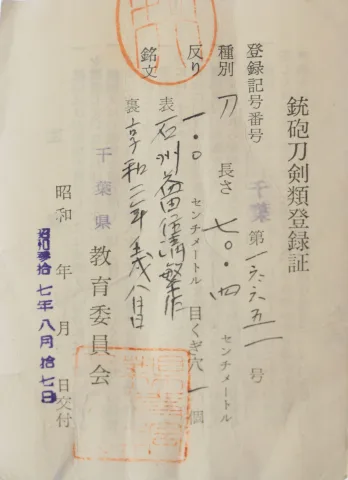 銃砲刀剣類登録証
登録記号番号 千葉 第一六六五一号
種別 刀 長さ 七〇・四 センチメートル
反り 一・〇 センチメートル 目くぎ穴 一 個
銘文 表 石州益田住清繁作
裏 享和二年壬戌八月日
千葉県 教育委員会
昭和 年 月 日交付
昭和参拾七年八月拾七日